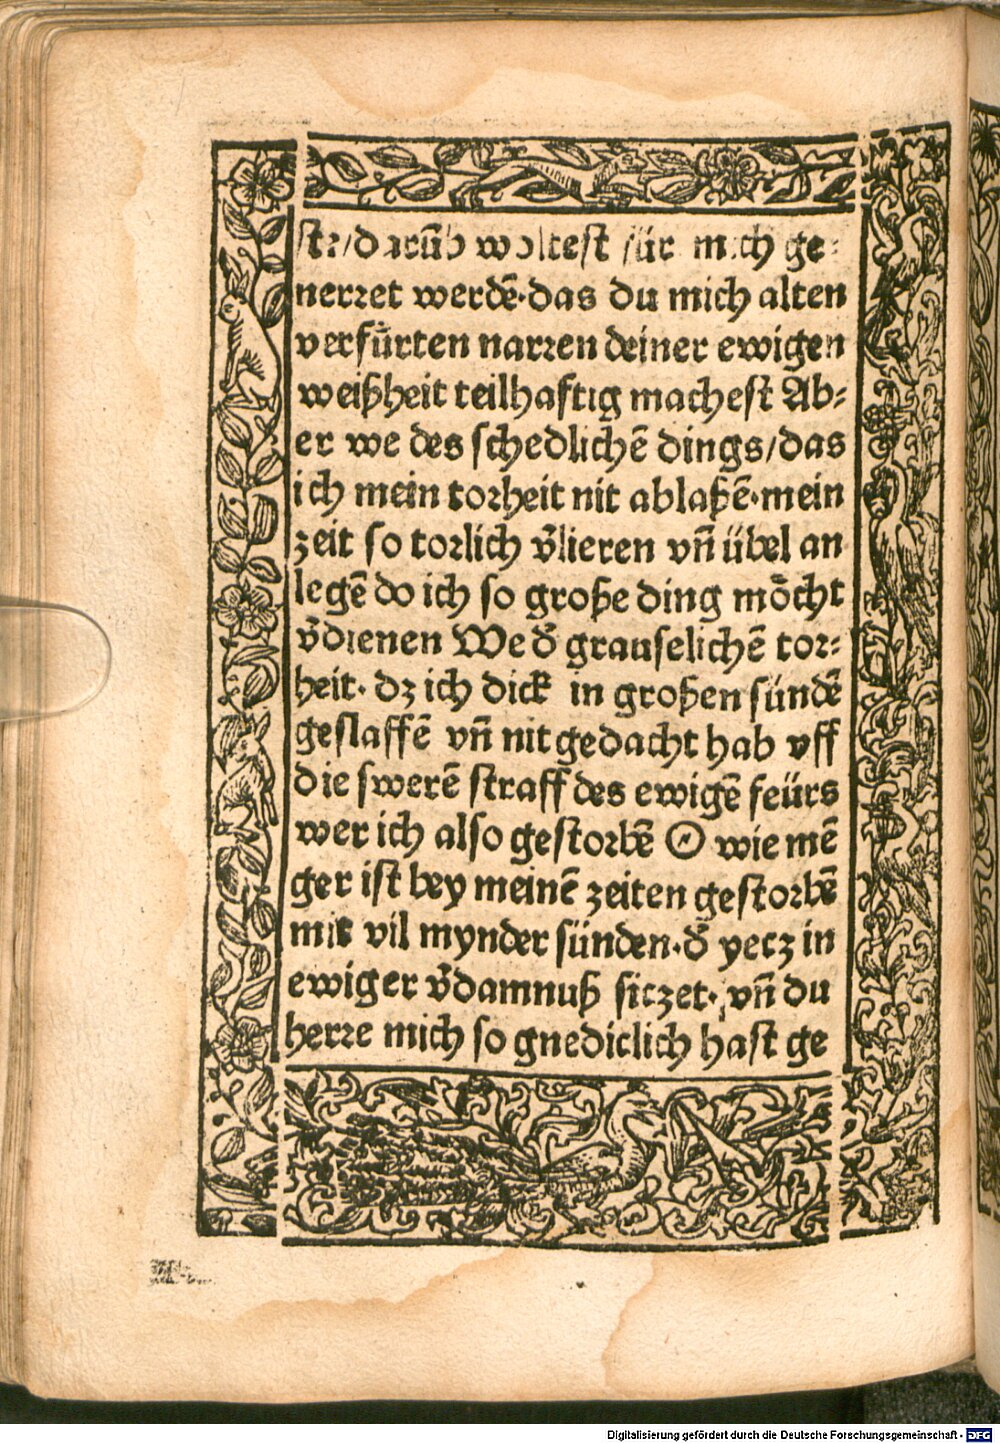 str/darūb woltest für mich ge⸗
nerret werdē·das du mich alten
verfürten narren deiner ewigen
weißheit teilhaftig machest Ab⸗
er we des schedlichē dings/das
ich mein torheit nit ablaßē·mein
zeit so torlich v̄lieren vn̄ übel an
legē do ich so große ding mȫcht
v̄dienen We d̄ grauselichē tor⸗
heit· dz ich dick in großen sündē
geslaffē vn̄ nit gedacht hab vff
die swerē straff des ewigē feürs
wer ich also gestorbē O wie mē
ger ist bey meinē zeiten gestorbē
mit vil mynder sünden·d̄ yecz in
ewiger v̄damnuß siczet· vn̄ du
herre mich so gnediclich hast ge
Digitalisierung gefördert durch die Deutsche Forschungsgemeinschaft - DFG